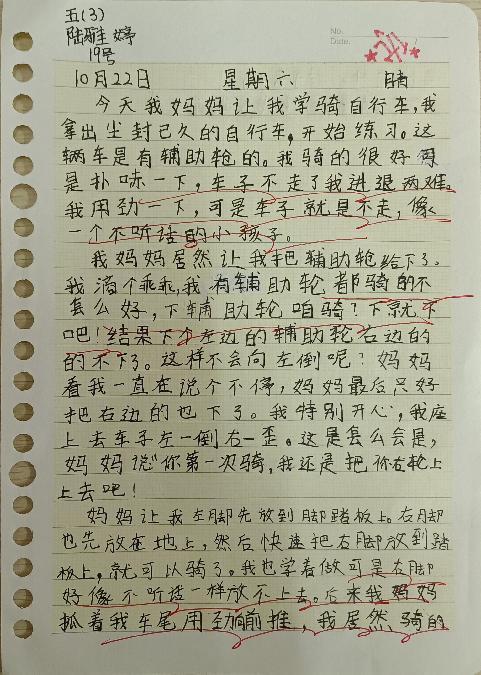 五(3)
陆骓婷
19号
No.
Date.
10月22日 星期六 晴
今天我妈妈让我学骑自行车,我
拿出尘封已久的自行车,开始练习。这
辆车是有辅助轮的。我骑的很好
是扑哧一下,车子不走了我进退两难。
我用劲一下,可是车子就是不走,像
一个不听话的小孩子。
我妈妈居然让我把辅助轮给下了。
我滴个乖乖,我有辅助轮都骑的不
怎么好,下辅助轮咱骑?下就下
吧!结果下个左边的辅助轮右边的
的不下了。这样不会向左倒呢?妈妈
看我一直在说个不停,妈妈最后只好
把右边的也下了。我特别开心,我座
上去车子左一倒右一歪。这是怎么会是,
妈妈说"你第一次骑,我还是把你右轮上
上去吧!
妈妈让我左脚先放到脚踏板上。右脚
也先放在地上,然后快速把右脚放到踏
板上,就可以骑了。我也学着做可是右脚
好像不听话一样放不上去。后来我妈妈
抓着我车尾用劲前推,我居然骑的